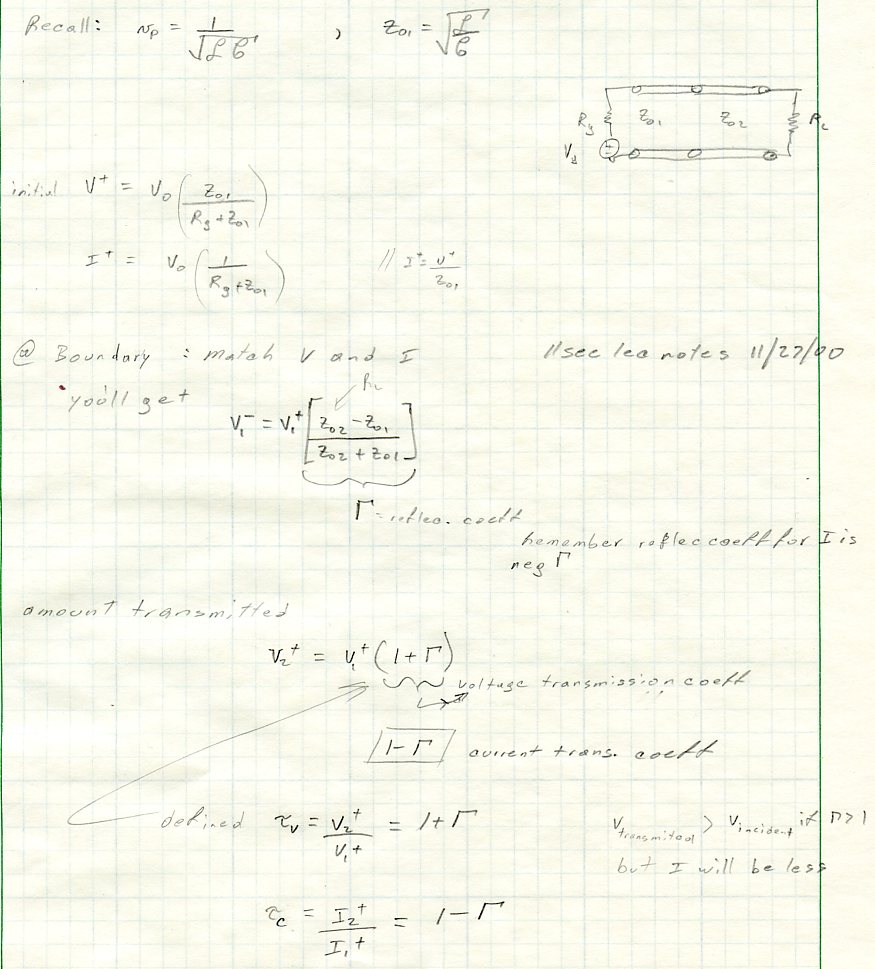 Recall: v_p = 1/√(ℒ𝒞) , Z01 = √(ℒ/𝒞)
Rg Z01 Z02 RL
Vg
initial V⁺ = V0 (Z01 / (Rg + Z01))
I⁺ = V0 (1 / (Rg + Z01)) // I⁺ = V⁺/Z01
@ Boundary : match V and I // see lec notes 11/27/00
you'll get
RL
V1⁻ = V1⁺ [(Z02 - Z01) / (Z02 + Z01)]
Γ = reflec. coeff
remember reflec coeff for I is
neg Γ
amount transmitted
V2⁺ = V1⁺ (1 + Γ)
voltage transmission coeff
1 - Γ current trans. coeff
defined τv = V2⁺/V1⁺ = 1 + Γ
Vtransmitted > Vincident if Γ > 1
but I will be less
τc = I2⁺/I1⁺ = 1 - Γ